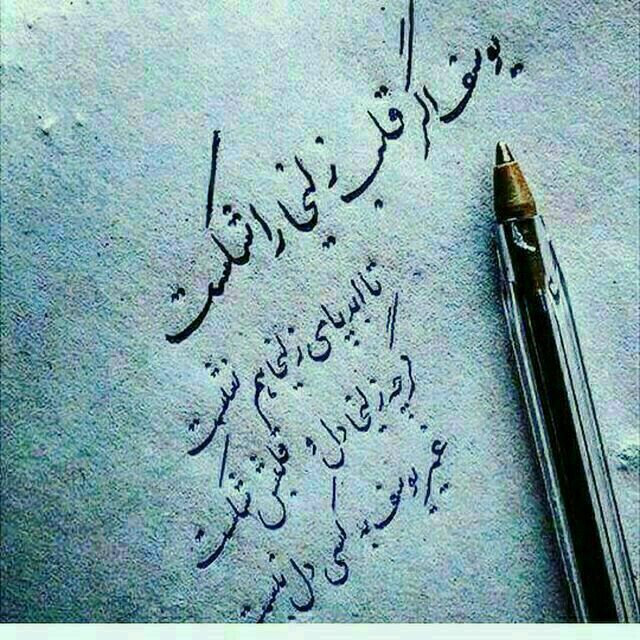 یوسف اگر قلب زلیخا را شکست
تا ابد پای زلیخا هم نشست
گرچه زلیخا دل و قلبش شکست
غیر یوسف به کسی دل نبست